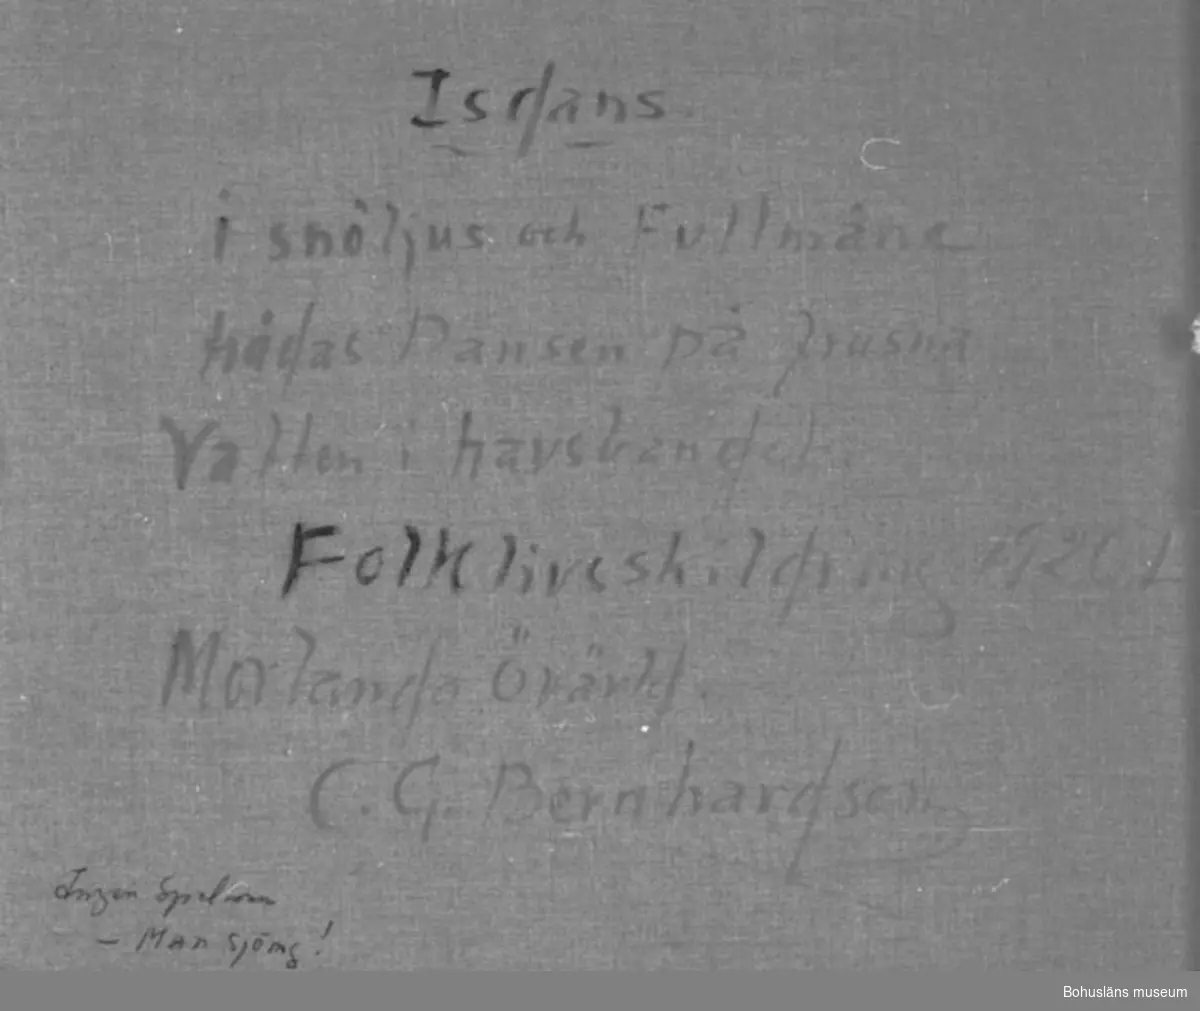 Isdans.
i snöljus och Fullmåne
trådas Dansen på frusna
Vatten i havsbandet.
Folklivsskildring
Morlanda Övärld.
C. G. Bernhardson
Ingen Spelman
– Man sjöng!
Bohusläns museum